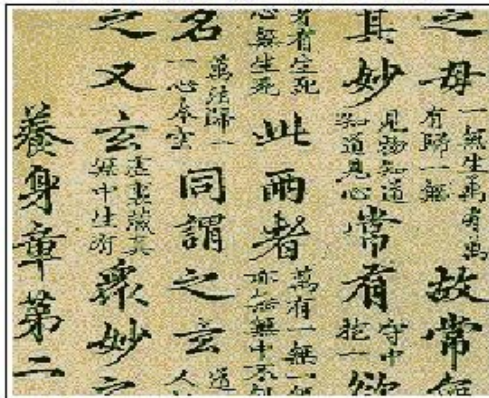 之母一無生萬有萬有歸一無故常無
其妙見物知道知道見心常有守中抱一欲
者有生死心無生死此兩者萬有一無一
名萬法歸一一心本空同謂之玄道人
之又玄虛裏藏真無中生有眾妙之
養身章第二